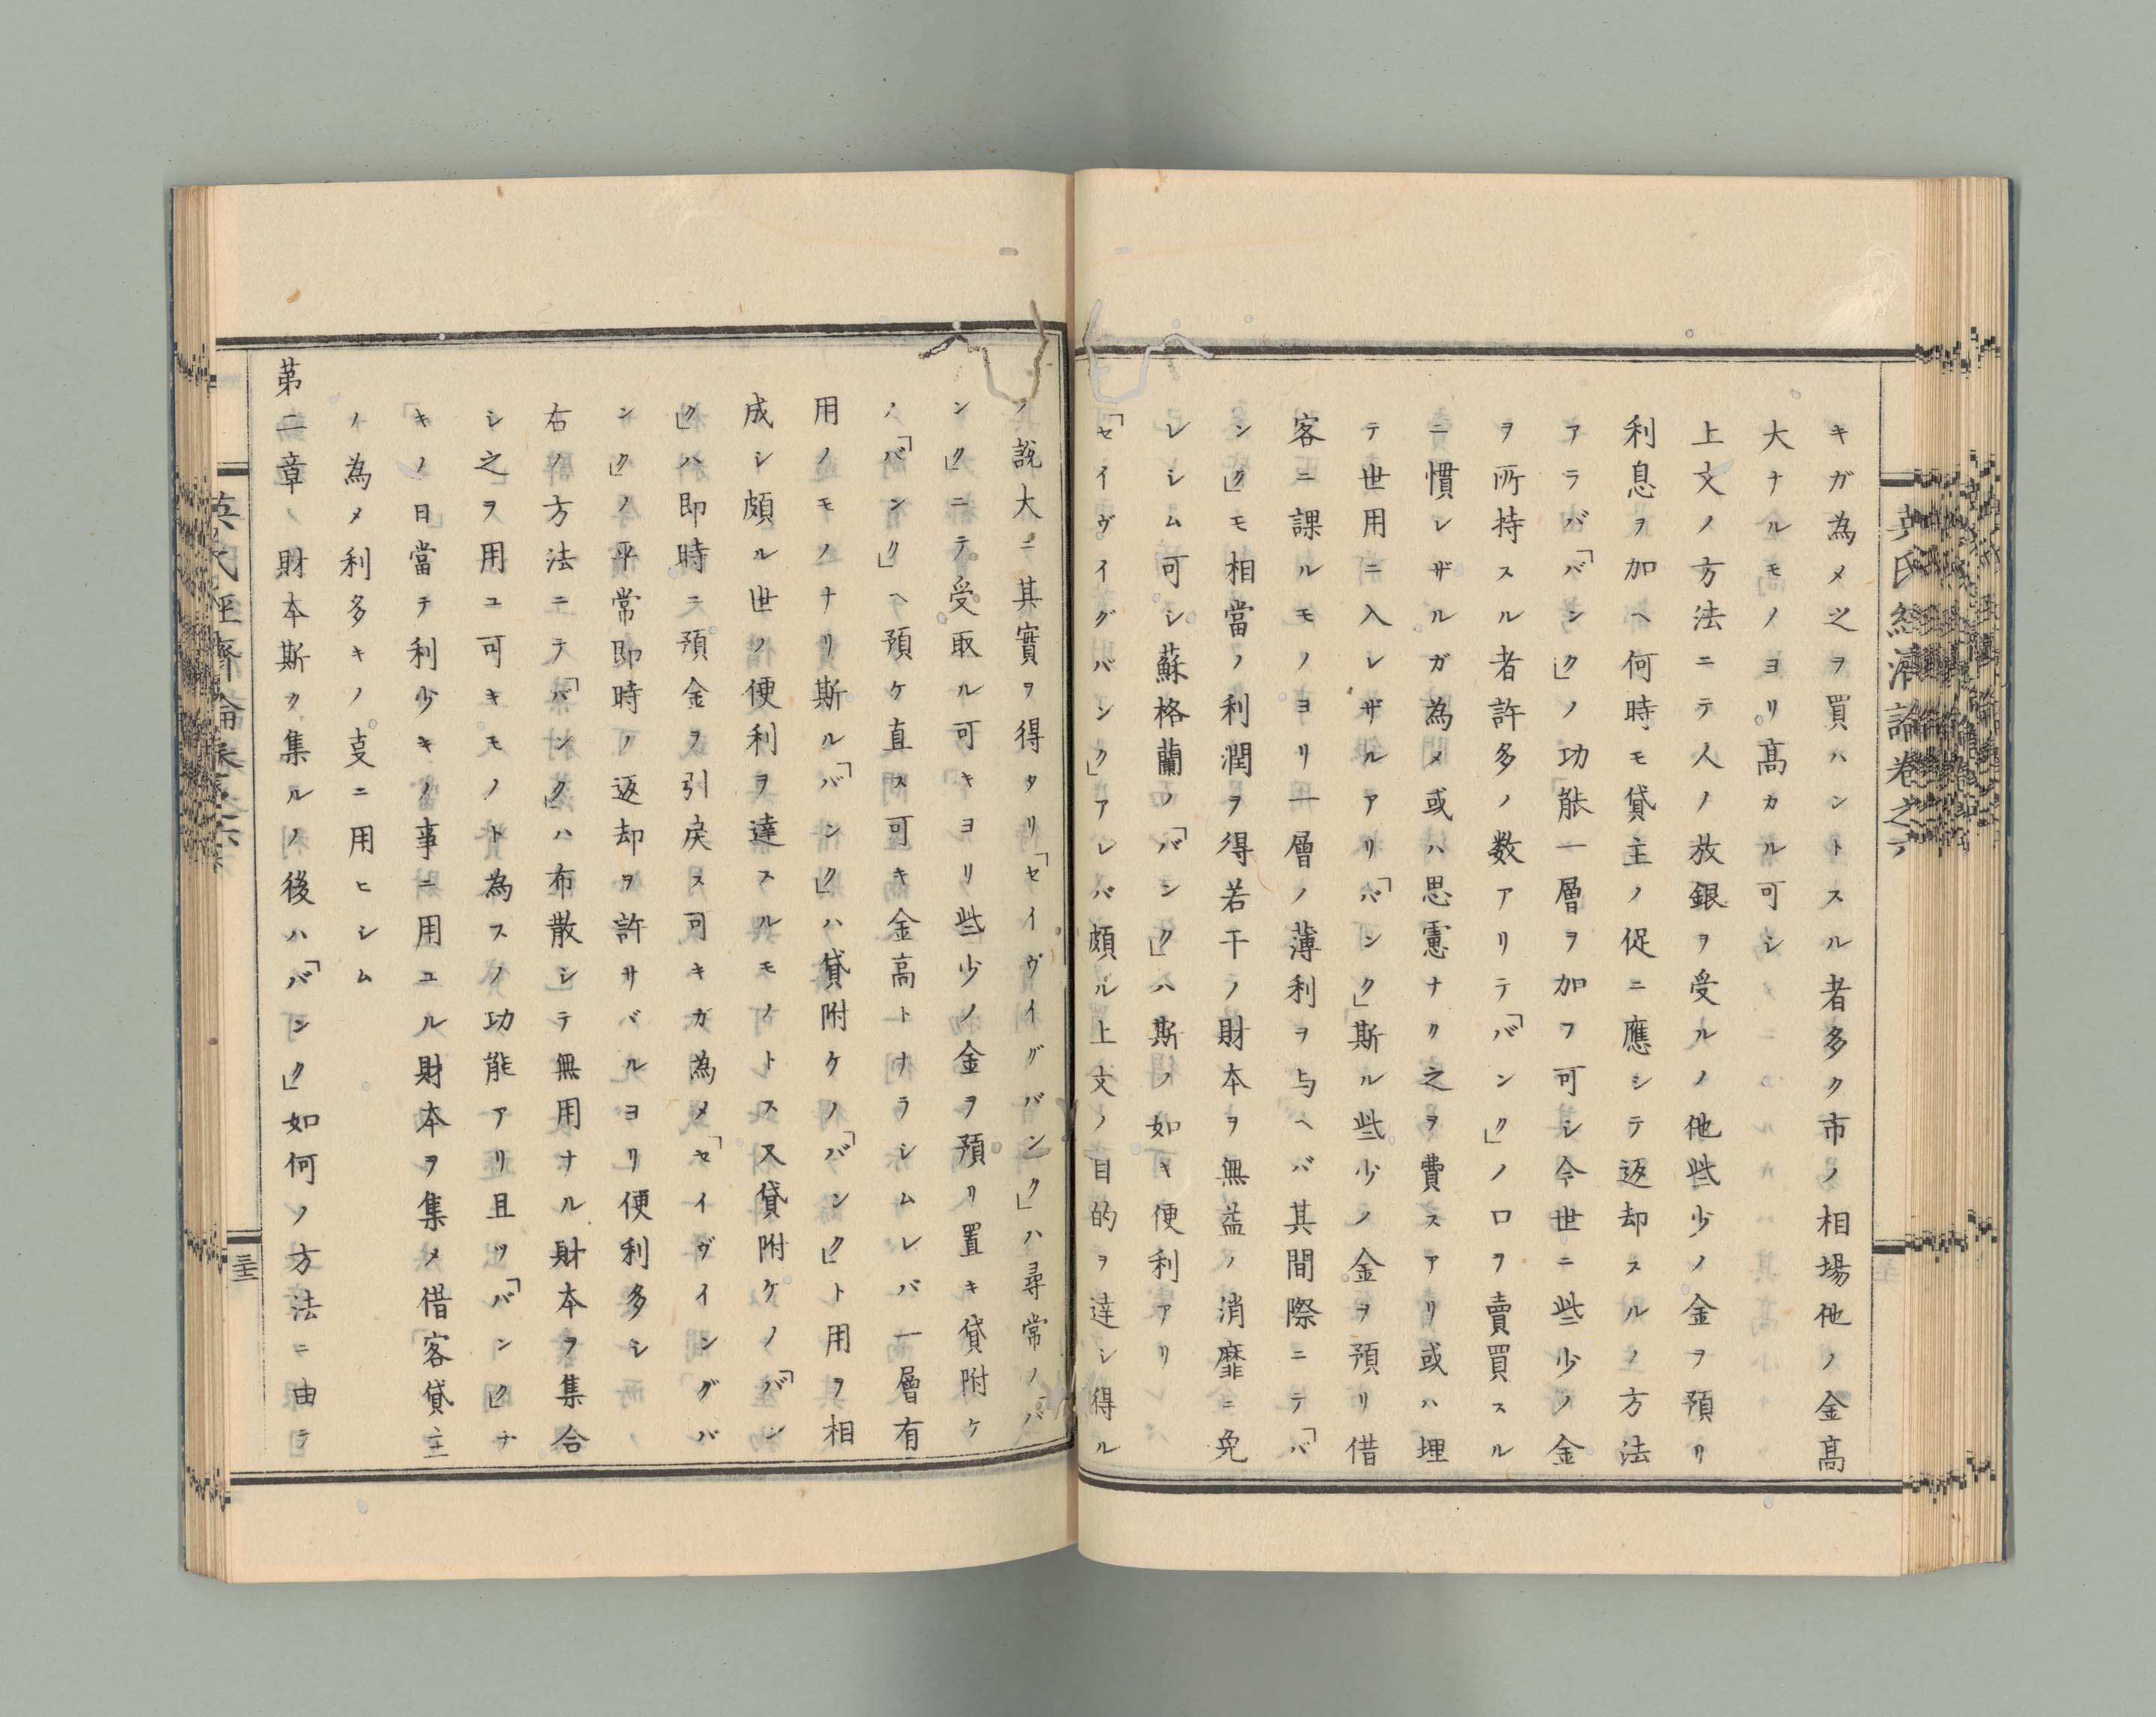 英氏経済論巻之六
キガ為メ之ヲ買ハントスル者多ク市ノ相場他ノ金高
大ナルモノヨリ高カル可シ
上文ノ方法ニテ人ノ放銀ヲ受ルノ他些少ノ金ヲ預リ
利息ヲ加ヘ何時モ貸主ノ促ニ應シテ返却スルノ方法
アラバ「バンク」ノ功能一層ヲ加フ可シ今世ニ些少ノ金
ヲ所持スル者許多ノ数アリテ「バンク」ノ口ヲ賣買スル
ニ慣レザルガ為メ或ハ思慮ナク之ヲ費スアリ或ハ埋
テ世用ニ入レザルアリ「バンク」斯ル些少ノ金ヲ預リ借
客ニ課ルモノヨリ一層ノ薄利ヲ与ヘバ其間際ニテ「バ
ンク」モ相當ノ利潤ヲ得若干ノ財本ヲ無益ノ消靡ニ免
レシム可シ蘇格蘭ノ「バンク」ハ斯ノ如キ便利アリ
「セイヴイグバンク」アレバ頗ル上文ノ目的ヲ達シ得ル
ノ説大ニ其實ヲ得タリ「セイヴイグバンク」ハ尋常ノ「バ
ンク」ニテ受取ル可キヨリ些少ノ金ヲ預リ置キ貸附ケ
ノ「バンク」ヘ預ケ直ス可キ金高トナラシムレバ一層有
用ノモノナリ斯ル「バンク」ハ貸附ケノ「バンク」ト用ヲ相
成シ頗ル世ノ便利ヲ達スルモノトス又貸附ケノ「バン
ク」ハ即時ニ預金ヲ引戻ス可キガ為メ「セイヴイングバ
ンク」ノ平常即時ノ返却ヲ許サバルヨリ便利多シ
右ノ方法ニテ「バンク」ハ布散シテ無用ナル財本ヲ集合
シ之ヲ用ユ可キモノト為スノ功能アリ且ツ「バンク」ナ
キノ日當テ利少キノ事ニ用ユル財本ヲ集メ借客貸主
ノ為メ利多キノ㕝ニ用ヒシム
第二章ノ財本斯ク集ルノ後ハ「バンク」如何ノ方法ニ由テ
英氏経濟論